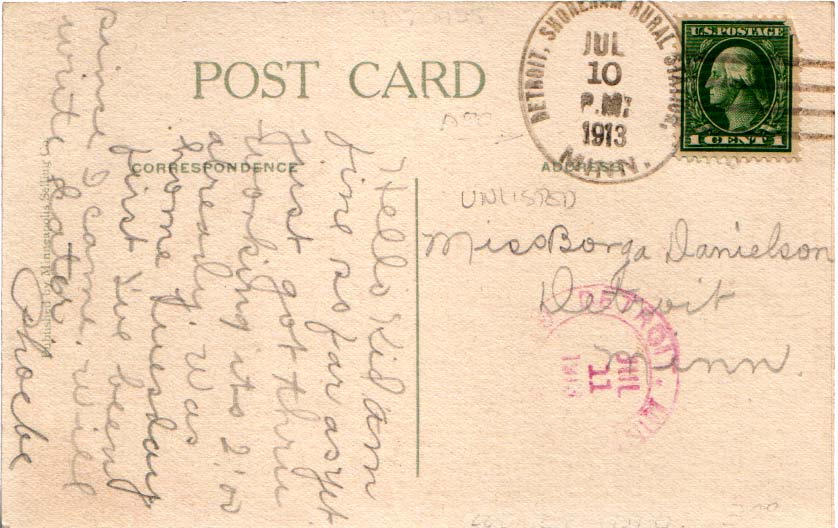 POST CARD
CORRESPONDENCE
ADDRESS
DETROIT, SHOREHAM RURAL STATION.
JUL
10
P.M.
1913
MINN.
U.S. POSTAGE
1 CENT 1
UNLISTED
Miss Borga Danielson
Detroit
Minn.
DETROIT, MINN
JUL
11
1913
Hello Kid am
fine so far as yet
Just got thru
working its 2:00
already. Was
home Tuesday
first I've been
since I came. will
write later.
Phoebe
Published by Minneapolis Selling